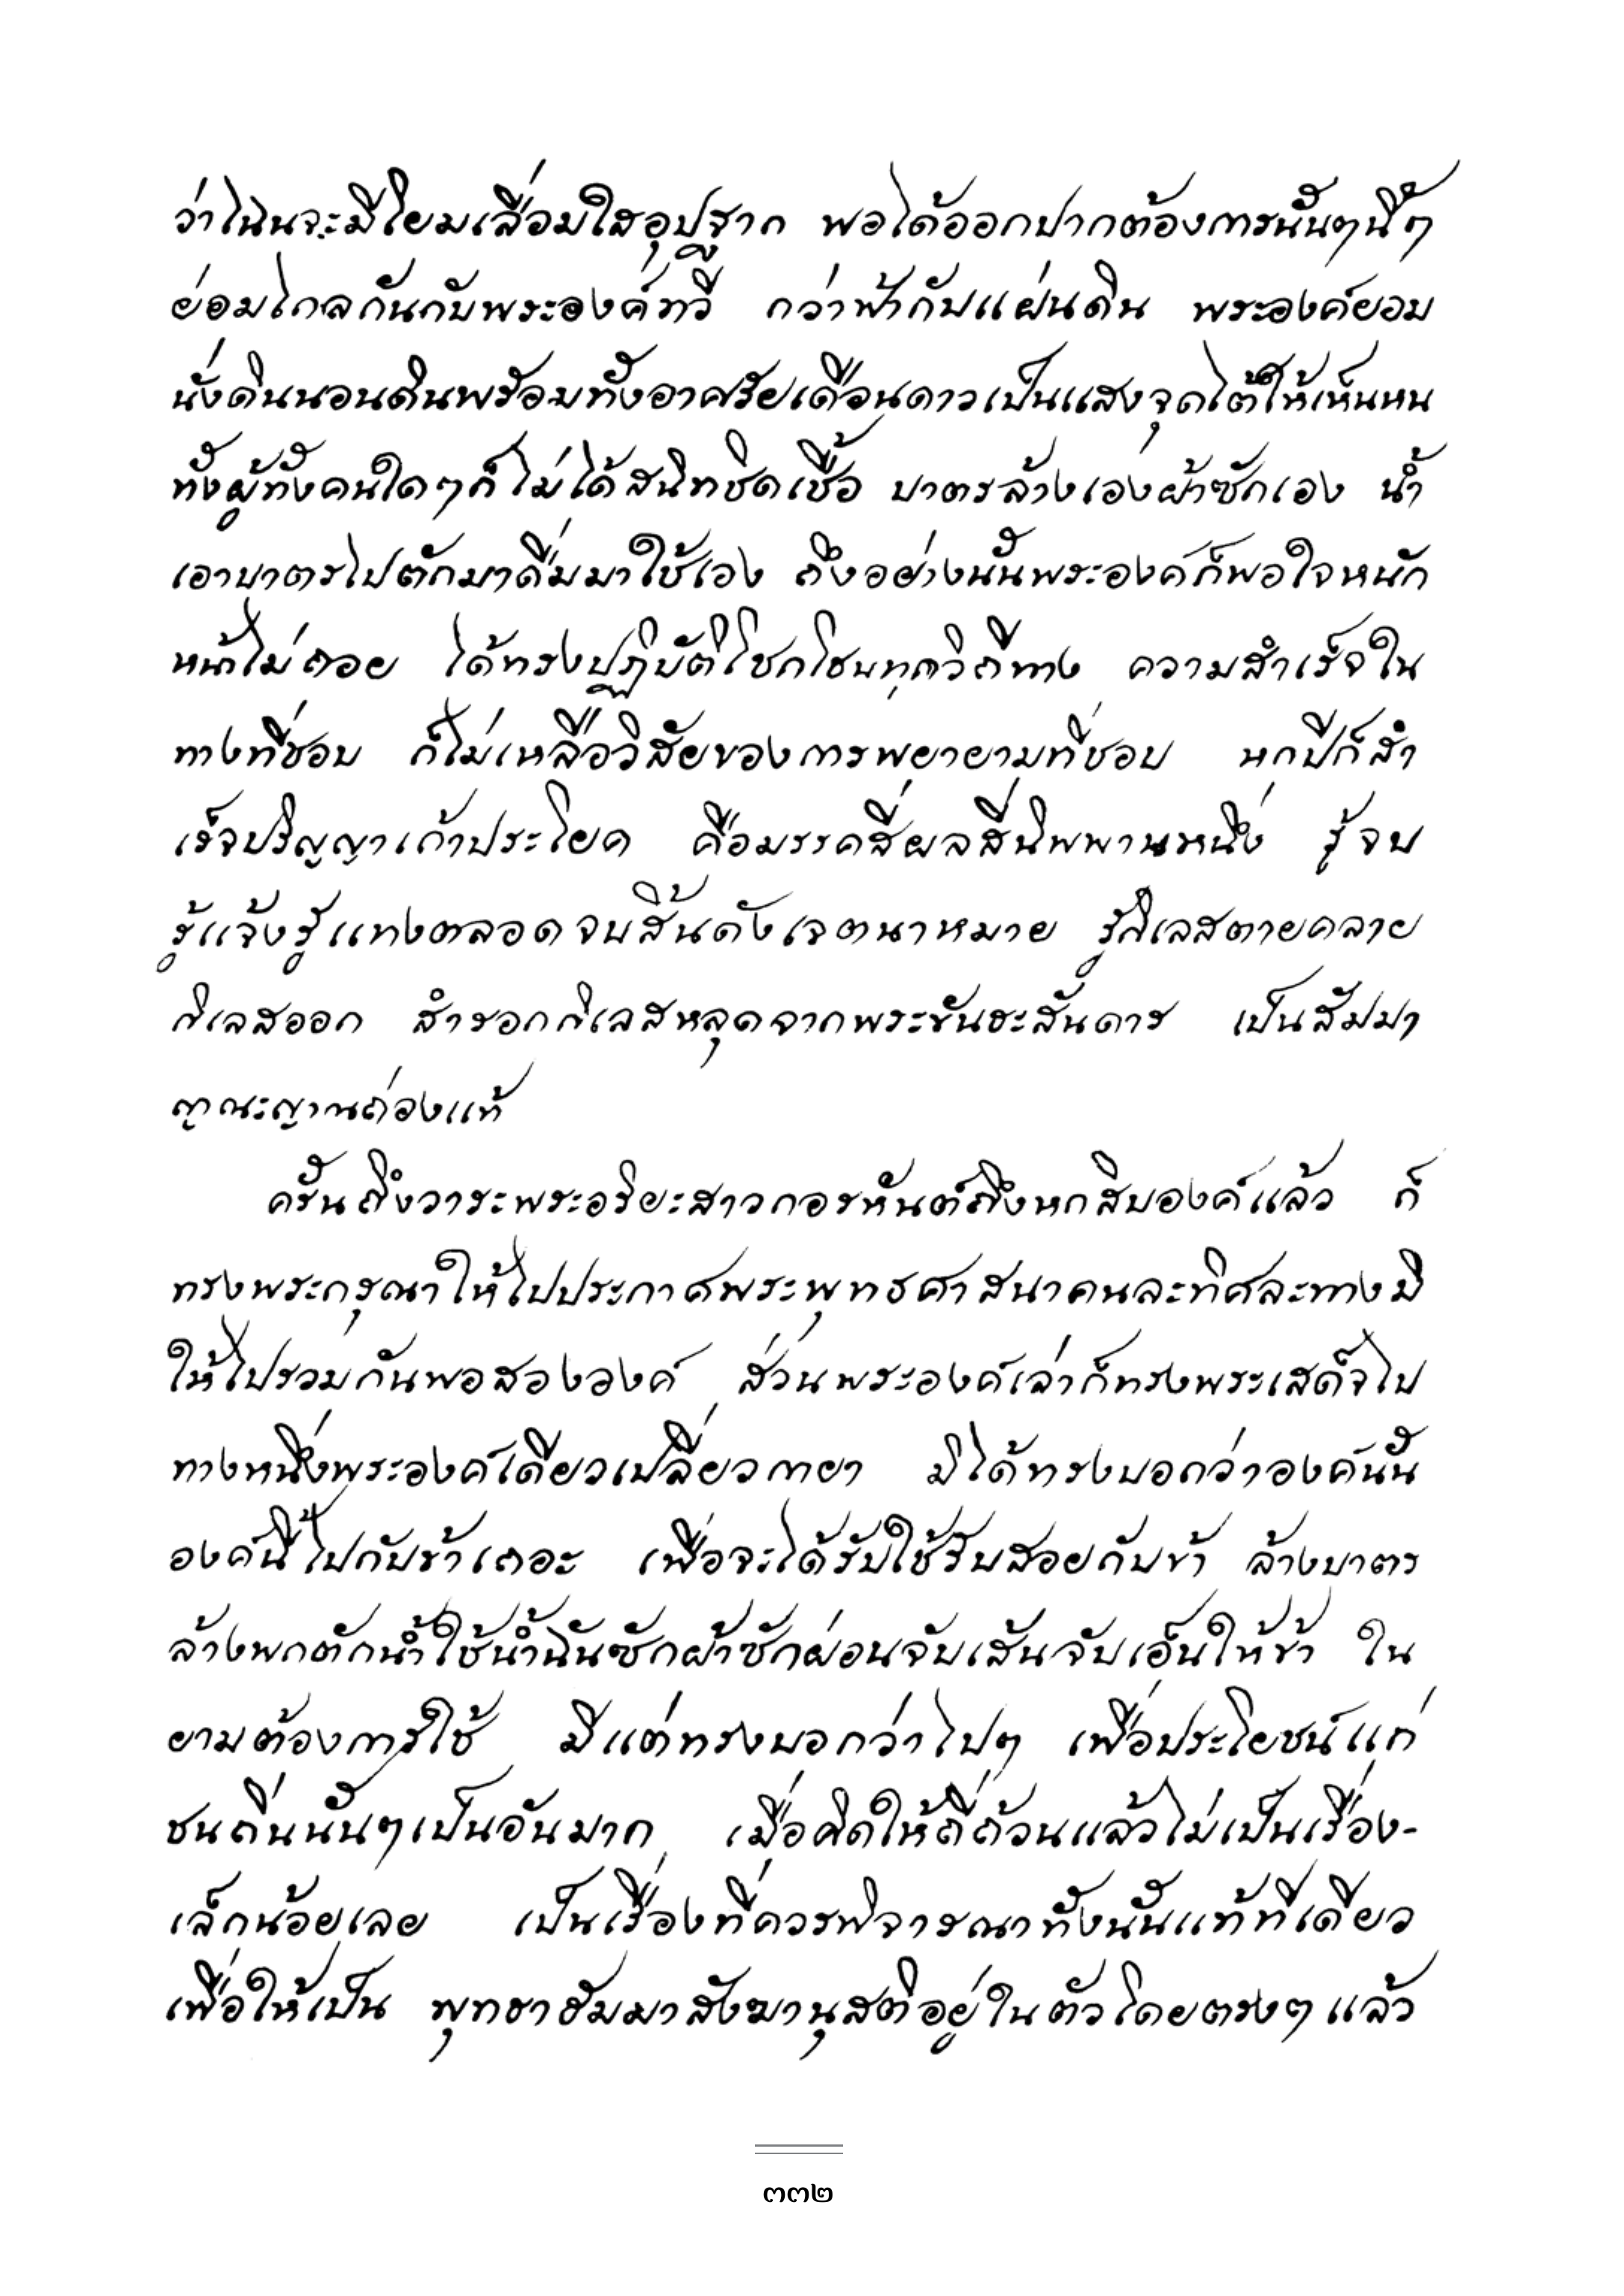 ว่าไฉนจะมีโยมเลื่อมใสอุปฐาก พอได้ออกปากต้องการนั้นๆนี้ๆ
ย่อมไกลกันกับพระองค์ทวี กว่าฟ้ากับแผ่นดิน พระองค์ยอม
นั่งดินนอนดินพร้อมทั้งอาศรัยเดือนดาวเป็นแสงจุดไต้ให้เห็นหน
ทั้งผู้ทั้งคนใดๆก็ไม่ได้สนิทชิดเชื้อ บาตรล้างเองผ้าซักเอง น้ำ
เอาบาตรไปตักมาดื่มมาใช้เอง ถึงอย่างนั้นพระองค์ก็พอใจหนัก
หน้าไม่ถอย ได้ทรงปฏิบัติโชกโชนทุกวิถีทาง ความสำเร็จใน
ทางที่ชอบ ก็ไม่เหลือวิสัยของการพยายามที่ชอบ หกปีก็สำ
เร็จปริญญาเก้าประโยค คือมรรคสี่ผลสี่นิพพานหนึ่ง รู้จบ
รู้แจ้งรู้แทงตลอดจบสิ้นดังเจตนาหมาย รู้กิเลสตายคลาย
กิเลสออก สำรอกกิเลสหลุดจากพระขันธะสันดาร เป็นสัมมา
ญาณะญานถ่องแท้
ครั้นถึงวาระพระอริยะสาวกอรหันต์ถึงหกสิบองค์แล้ว ก็
ทรงพระกรุณาให้ไปประกาศพระพุทธศาสนาคนละทิศละทางมิ
ให้ไปรวมกันพอสององค์ ส่วนพระองค์เล่าก็ทรงพระเสด็จไป
ทางหนึ่งพระองค์เดียวเปลี่ยวกายา มิได้ทรงบอกว่าองค์นั้น
องค์นี้ไปกับข้าเถอะ เพื่อจะได้รับใช้รับสอยกับข้า ล้างบาตร
ล้างพกตักน้ำใช้น้ำฉันซักผ้าซักผ่อนจับเส้นจับเอ็นให้ข้า ใน
ยามต้องการใช้ มีแต่ทรงบอกว่าไปๆ เพื่อประโยชน์แก่
ชนถิ่นนั้นๆเป็นอันมาก เมื่อคิดให้ถี่ถ้วนแล้วไม่เป็นเรื่อง-
เล็กน้อยเลย เป็นเรื่องที่ควรพิจารณาทั้งนั้นแท้ทีเดียว
เพื่อให้เป็น พุทธาธัมมาสังฆานุสติอยู่ในตัวโดยตรงๆ แล้ว
๓๓๒